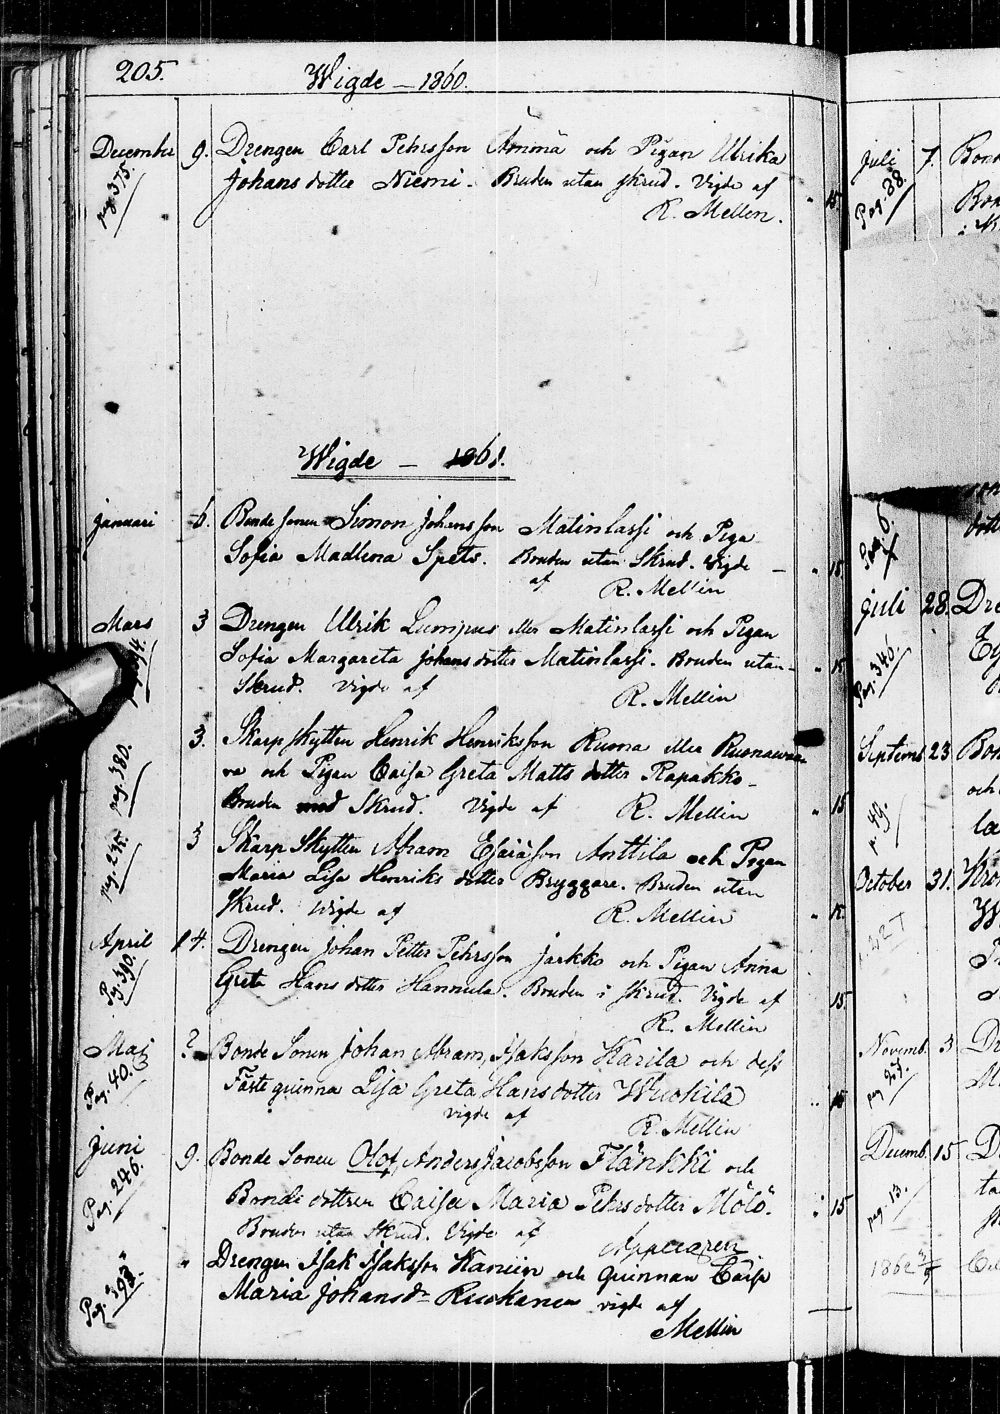 205.
Wigde — 1860.
December 9. Drengen Carl Pehrsson Ämmä och Pigan Ulrika
pag. 375. Johans dotter Niemi. Bruden utan skrud. Vigde af " 15
R. Mellin.
Wigde — 1861.
Januari 6. Bonde sonen Simon Johansson Matinlassi och Piga
Sofia Madlena Spets. Bruden utan Skrud. Vigde — " 15
af R. Mellin
Mars 3 Drengen Ulrik Lumpus eller Matinlassi och Pigan
Sofia Margareta Johans dotter Matinlassi. Bruden utan— " 15
Skrud. Vigde af R. Mellin
3. Skarpskytten Henrik Henriksson Ruona eller Ruonawaa
pag. 380. ra och Pigan Caisa Greta Matts dotter Rapakko—
Bruden med Skrud. Vigde af R. Mellin " 15
3 Skarp Skytten Abram Esaiæson Anttila och Pigan
Maria Lisa Henriks dotter Bryggare. Bruden utan
Skrud. Wigde af R. Mellin " 15
April 14. Drengen Johan Petter Pehrsson Jarkko och Pigan Anna
Pg. 390. Greta Hans dotter Hannula. Bruden i Skrud. Vigde af 15
R. Mellin
Maj ? Bonde Sonen Johan Abram Isaksson Karila och dess
Pag. 40. Fäste quinna Lisa Greta Hans dotter Wuokila
vigde af R. Mellin " 15
Juni 9. Bonde Sonen Olof Anders Jacobsson Flänkki och
Pag. 246. Bonde dottren Caisa Maria Pehrs dotter Mölö. 15
Bruden utan Skrud. Vigde af Appelgren
" Drengen Isak Isaksson Kanin och Quinnan Caisa
Maria Johansdr Ruokanen vigde af
Mellin
Juli 7. Bon
Pag. 88.
Pag. 6
Juli 28. Dre
Pag. 346.
Septemb 23 Bon
och
p. 49.
October 31. Kro
227
Novemb. 3 Dr
pag. 27.
Decemb. 15
pag. 13.